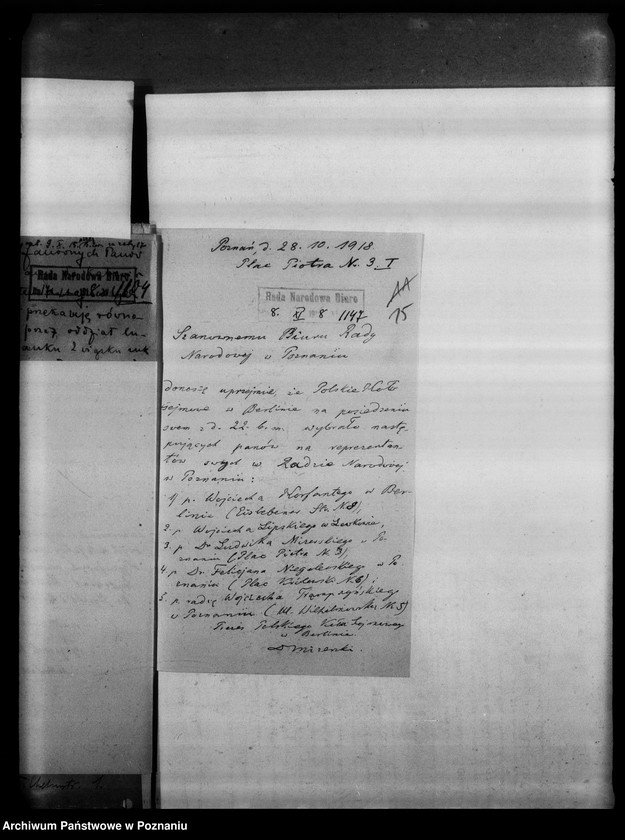 Poznań, d. 28. 10. 1918.
Plac Piotra Nr. 3 I
Rada Narodowa Biuro
8. XI 8 1147
15
Szanownemu Biuru Rady
Narodowej w Poznaniu
donoszę uprzejmie, że Polskie Koło
sejmowe w Berlinie na posiedzeniu
swem z d. 22. b. m. wybrało nastę
pujących panów na reprezentan
tów swych w Radzie Narodowej
w Poznaniu:
1) p. Wojciecha Korfantego w Ber-
linie (Eislebener Str. N. 8),
2. p. Wojciecha Lipskiego w Lewkowie,
3. p. Dr Ludwika Mizerskiego w Po
znaniu (Plac Piotra N. 3),
4. p. Dr. Felicjana Niegolewskiego w Po
znaniu (Plac N. 6),
5. p. radcę Wojciecha Trąmpczyńskiego
w Poznaniu (Ul. Wilhelmowska N. 5)
Prezes Polskiego Koła Sejmowego
w Berlinie
Dr Mizerski.
Rada Narodowa Biuro
przekazują równa
przez oddział
Archiwum Państwowe w Poznaniu